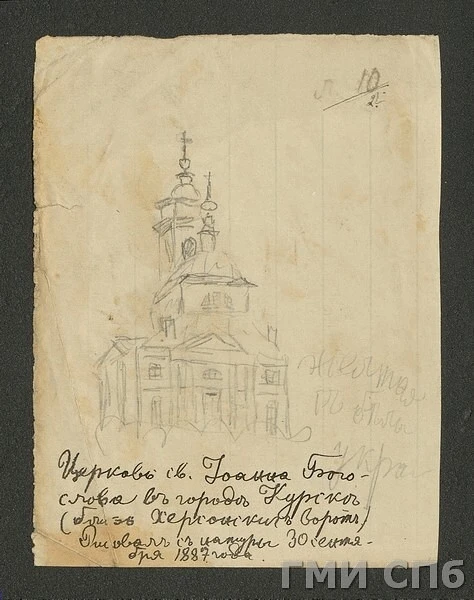 л. 10
2
желтая
Церковь св. Іоанна Бого-
слова въ городѣ Курскѣ
(близъ Херсонскихъ воротъ)
Рисовалъ съ натуры 30 сентя-
бря 1887 года.
ГМИ СПб